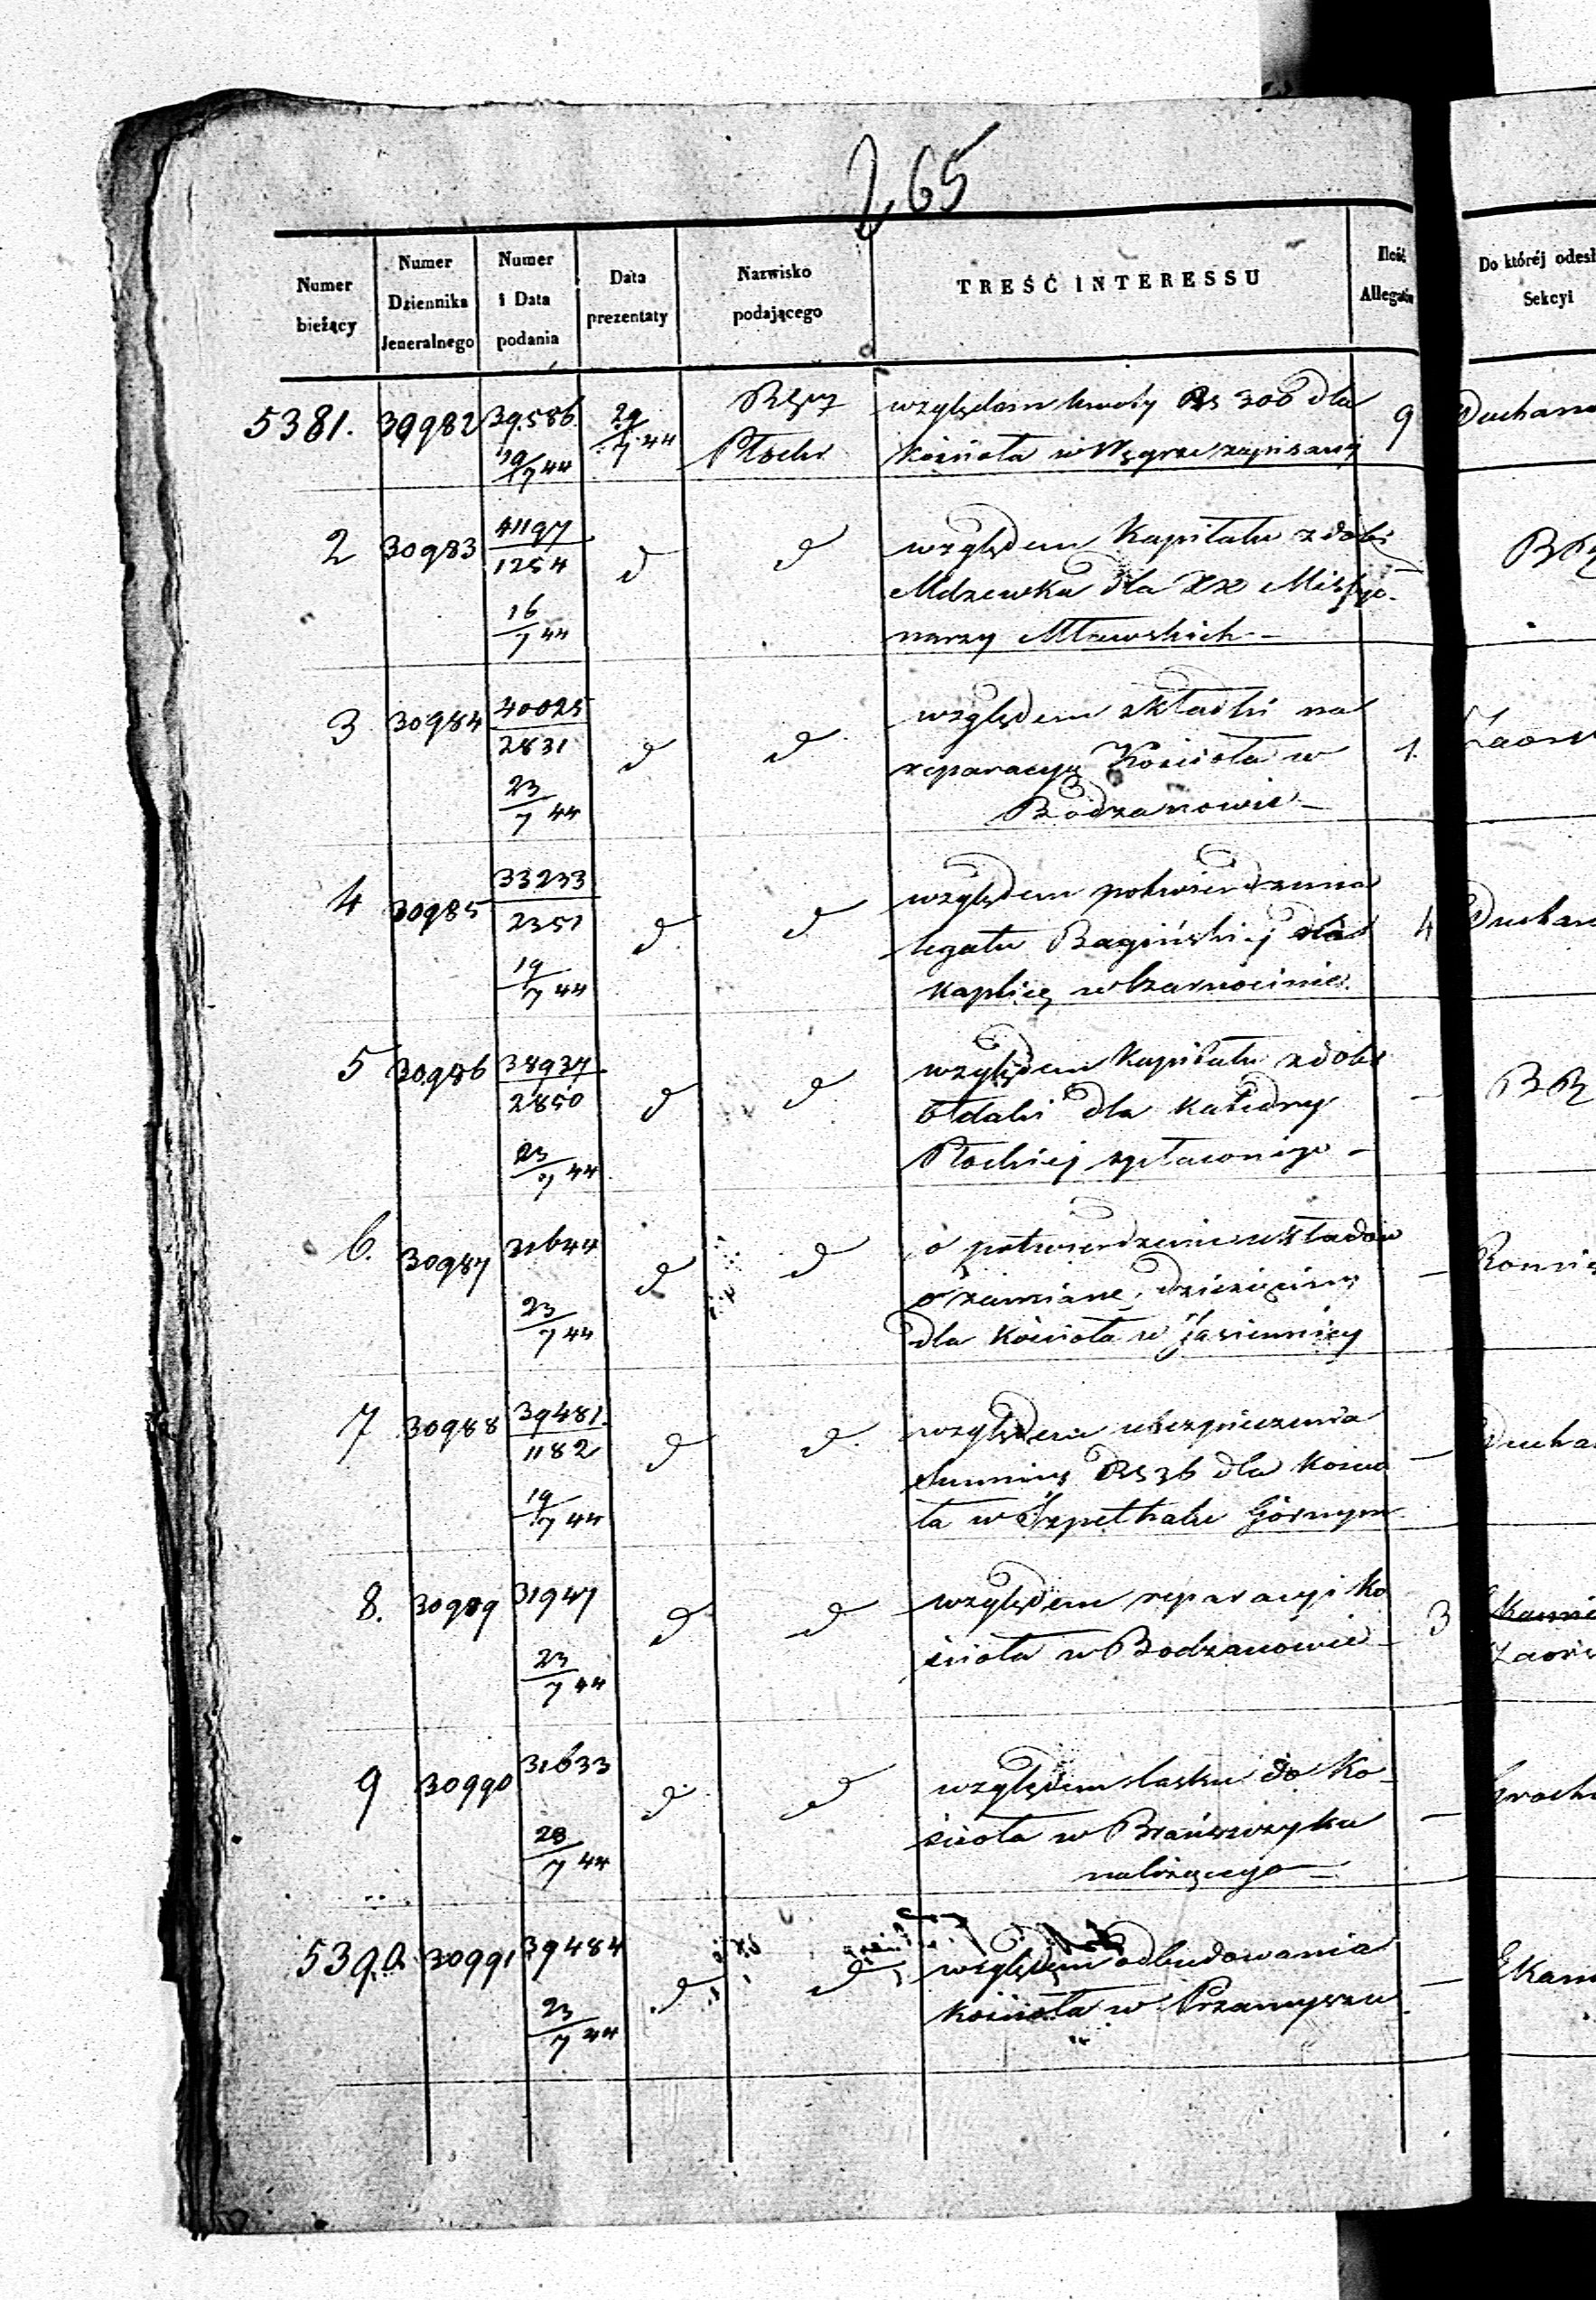 265
Numer bieżący | Numer Dziennika Jeneralnego | Numer i Data podania | Data prezentaty | Nazwisko podającego | TREŚĆ INTERESSU | Ilość Allegatów | Do któréj odesł Sekcyi
5381. 30982 39586 19/7 44 29/7 44 Rząd względem kwoty Rs 300 dla 9 Duchano
Płocki kościoła w Węgrze zapisanej
2 30983 41197/1254 16/7 44 d d względem Kapitału z dóbr
Mdzewka dla XX Missyo-
narzy Mławskich –
3 30984 40025/2831 23/7 44 d d względem składki na
reparacyą Kościoła w 1.
Bodzanowie –
4 30985 33233/2351 19/7 44 d d względem potwierdzenia
legatu Bagińskiej dla 4 Duchan
kaplicy w Czarnocinie.
5 30986 38937/2850 23/7 44 d d względem Kapitału z dóbr
dla Katedry –
Płockiej spłaconego –
6. 30987 31644 23/7 44 d d o potwierdzenie układów
o zamianę dziesięciny –
dla Kościoła w Jasiennicy
7 30988 39481/1182 19/7 44 d d względem ubezpieczenia
summy Rs 36 dla Kościo –
ła w Szpethalu Górnym
8. 30989 31947 23/7 44 d d względem reparacyi Ko
ścioła w Bodzanowie – 3
9 30990 31633 28/7 44 d d względem lasku do Ko-
ścioła w Brańszczyku –
należącego –
5390. 30991 39484 23/7 44 d d względem odbudowania –
kościoła w Przamyszu